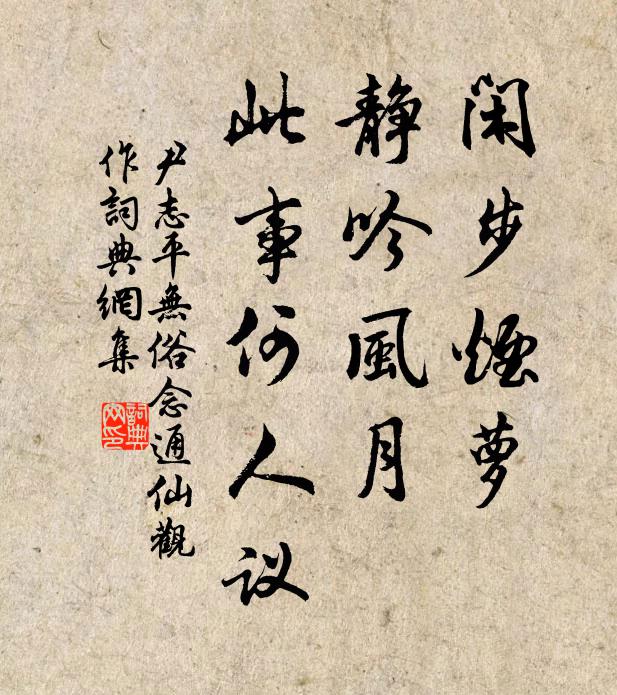 闲步煙萝
静吟風月
此事何人议
尹志平無俗念通仙觀
作詞典網集
詞典
网印